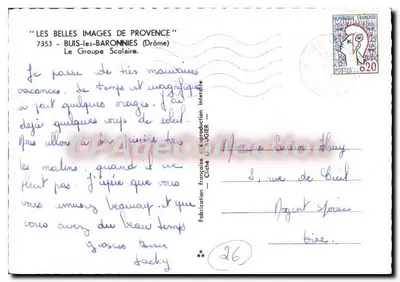 "LES BELLES IMAGES DE PROVENCE"
7353 - BUIS-les-BARONNIES (Drôme)
Le Groupe Scolaire.
RÉPUBLIQUE FRANÇAISE
POSTES 0,20
Je passe de très mauvaises
vacances. Le temps est magnifique
à part quelques orages. J'ai
déjà quelques coups de soleil.
Nous allons à la piscine tous
les matins, quand il ne
pleut pas. J'espère que vous
vous amusez beaucoup et que
vous avez du beau temps
Grosses Bises
Jacky
Fabrication française - Reproduction interdite
Cliché
rue de
26